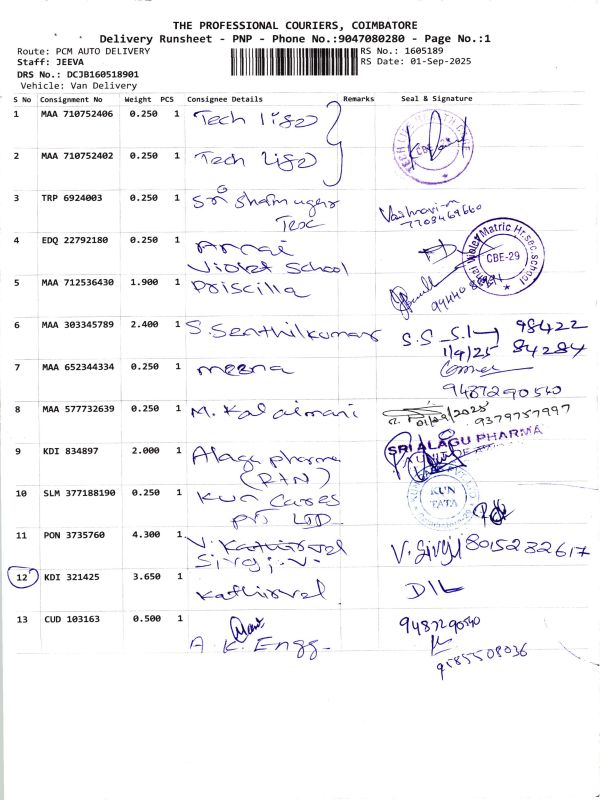 THE PROFESSIONAL COURIERS, COIMBATORE
Delivery Runsheet - PNP - Phone No.:9047080280 - Page No.:1
Route: PCM AUTO DELIVERY
RS No.: 1605189
Staff: JEEVA
RS Date: 01-Sep-2025
DRS No.: DCJB160518901
Vehicle: Van Delivery
S No Consignment No Weight PCS Consignee Details Remarks Seal & Signature
1 MAA 710752406 0.250 1 Tech life
2 MAA 710752402 0.250 1 Tech life
CBE-29
3 TRP 6924003 0.250 1 Sri Shamugar Tex
Vaishnavi-m
7708469660
4 EDQ 22792180 0.250 1 Annai
Violet School
Violet Matric.Hr.sec.school
CBE-29
5 MAA 712536430 1.900 1 Priscilla
6 MAA 303345789 2.400 1 S. Senthilkumar S.S 98422
1/9/25 84284
7 MAA 652344334 0.250 1 meena
9487290540
8 MAA 577732639 0.250 1 M. Kalaimani 01/09/2025
9379757997
9 KDI 834897 2.000 1 Alagu pharma
(RTN)
SRI ALAGU PHARMA
10 SLM 377188190 0.250 1 KUN Cares
pvt LTD
KUN
TATA
11 PON 3735760 4.300 1 V. Kathirvel
Sivaji. V. V. Sivaji 8015282617
12 KDI 321425 3.650 1 Kathirvel D/L
13 CUD 103163 0.500 1 A K. Engg.
9487290540
9585508036